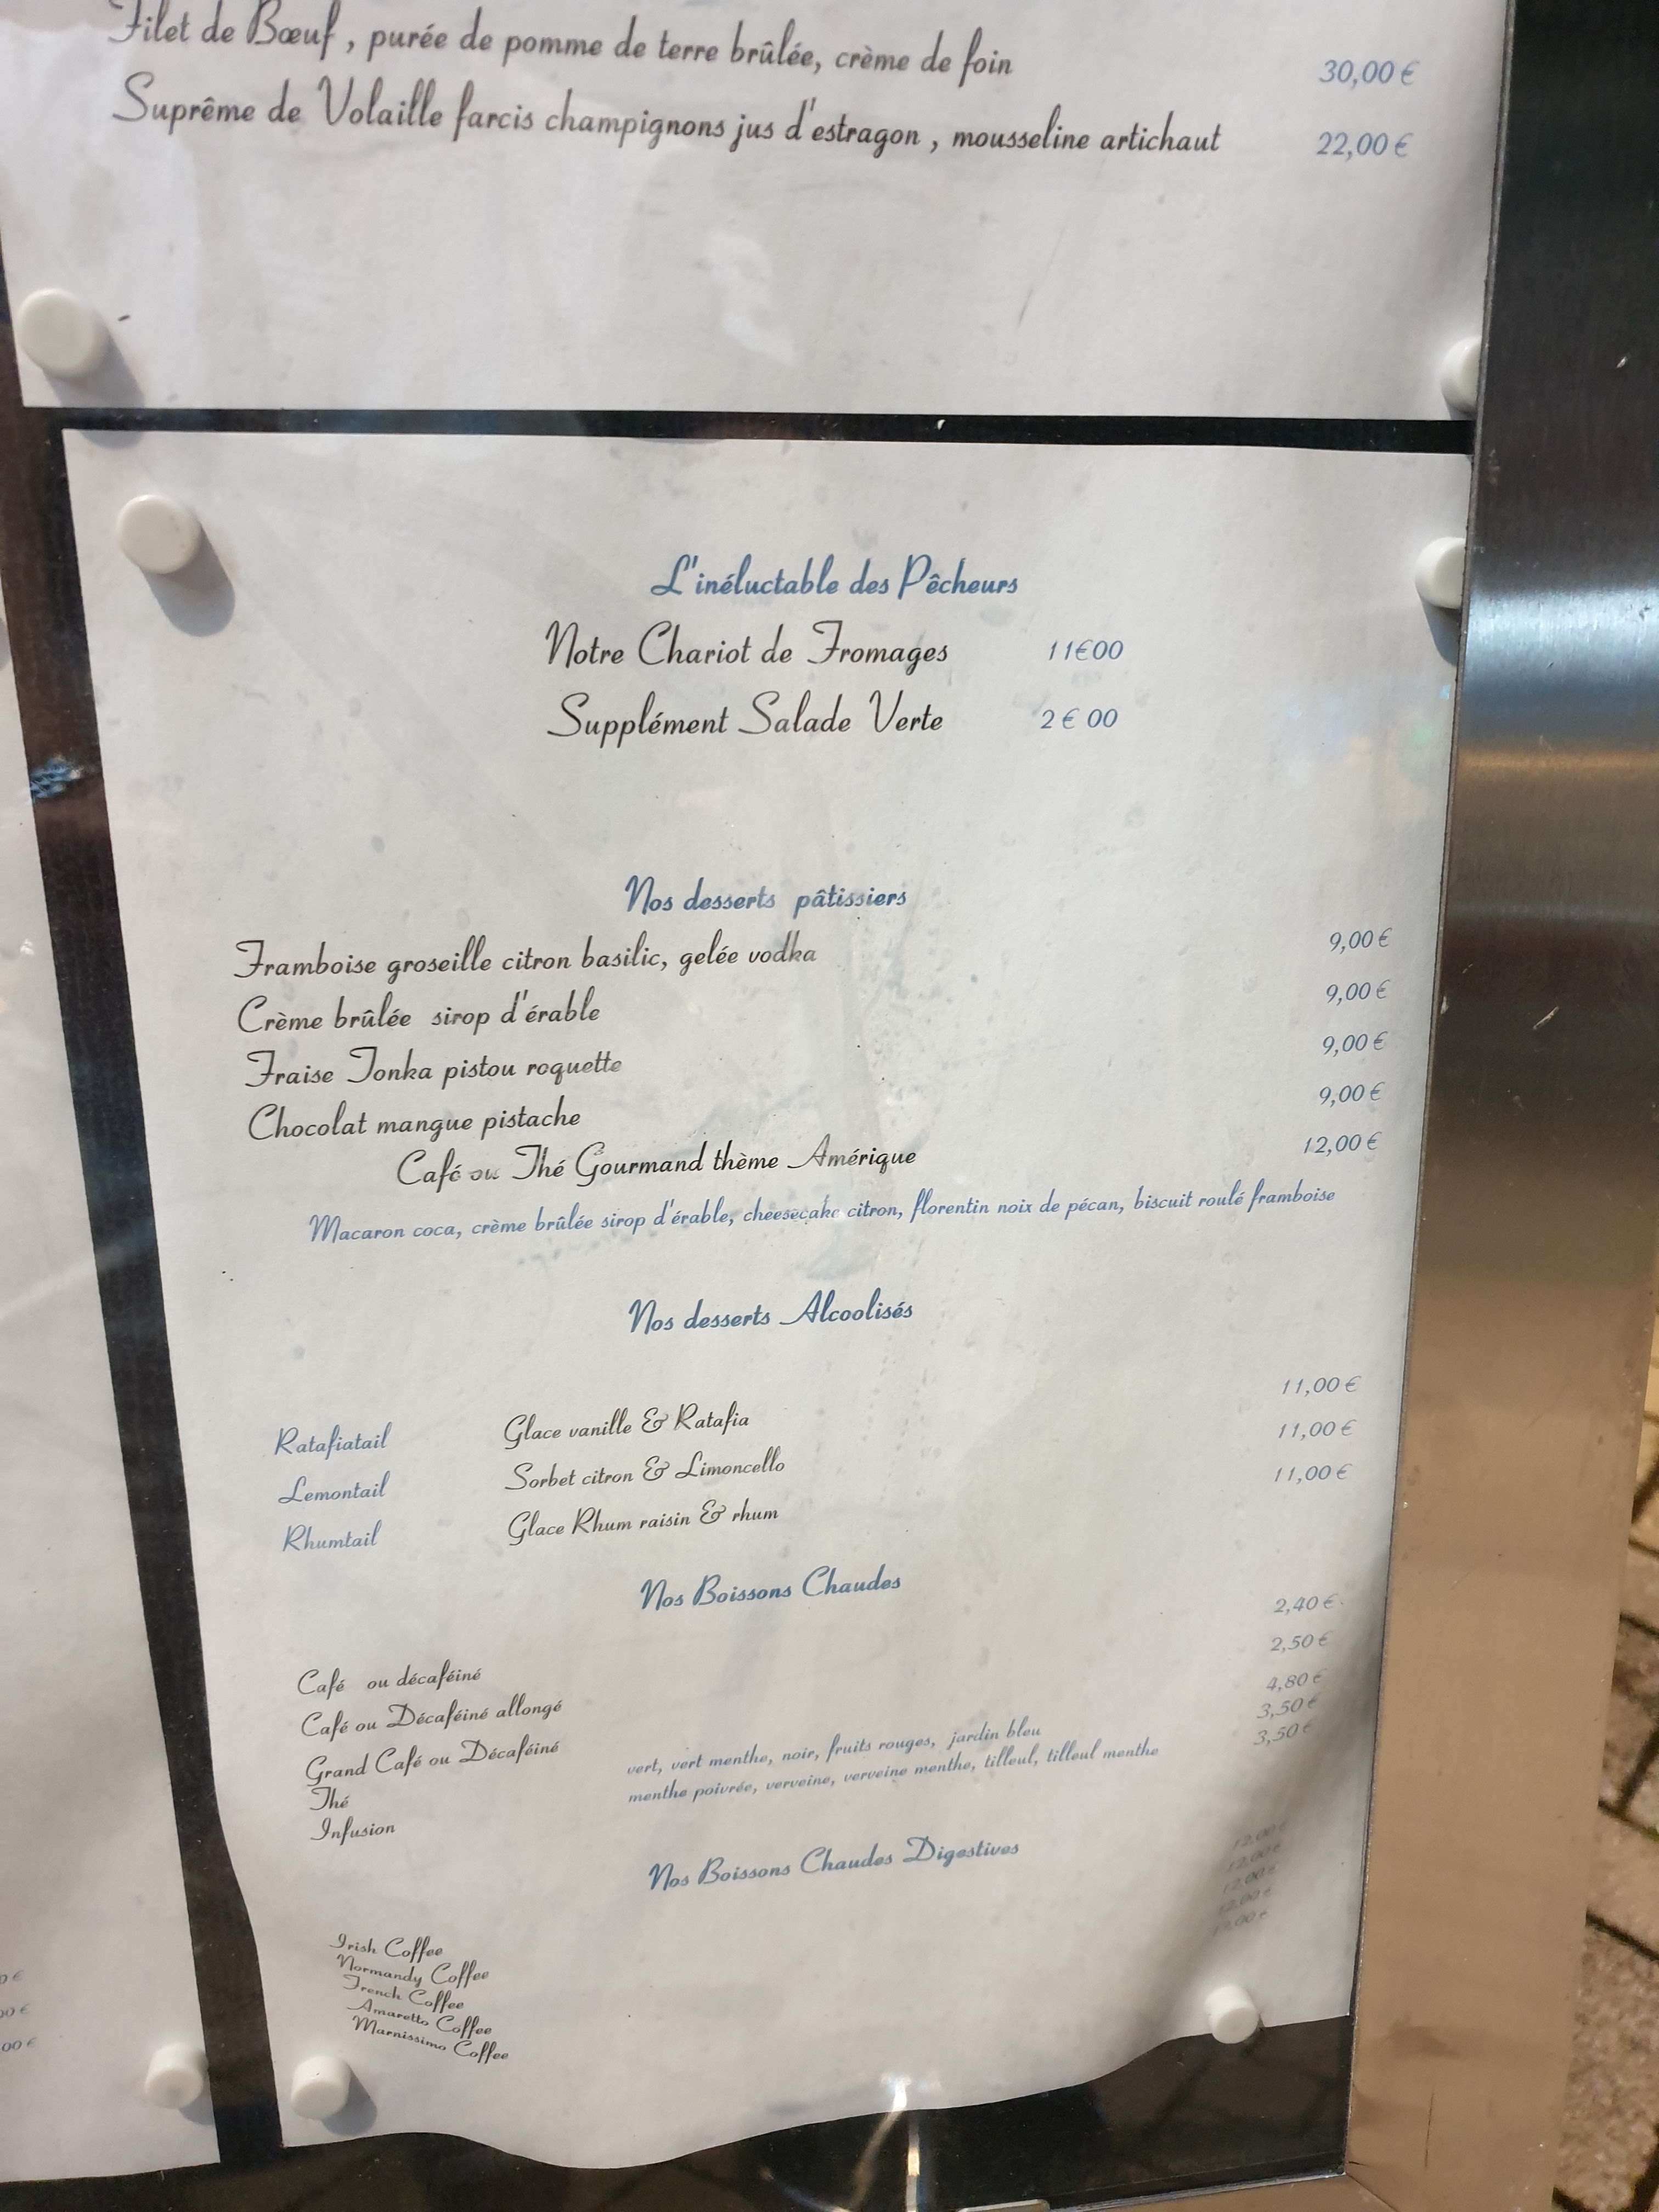 Filet de Bœuf , purée de pomme de terre brûlée, crème de foin 30,00 €
Suprême de Volaille farcis champignons jus d'estragon , mousseline artichaut 22,00 €
L'inéluctable des Pêcheurs
Notre Chariot de Fromages 11€00
Supplément Salade Verte 2 € 00
Nos desserts pâtissiers
Framboise groseille citron basilic, gelée vodka 9,00 €
Crème brûlée sirop d'érable 9,00 €
Fraise Tonka pistou roquette 9,00 €
Chocolat mangue pistache 9,00 €
Café ou Thé Gourmand thème Amérique 12,00 €
Macaron coca, crème brûlée sirop d'érable, cheesecake citron, florentin noix de pécan, biscuit roulé framboise
Nos desserts Alcoolisés
Ratafiatail Glace vanille & Ratafia 11,00 €
Lemontail Sorbet citron & Limoncello 11,00 €
Rhumtail Glace Rhum raisin & rhum 11,00 €
Nos Boissons Chaudes
Café ou décaféiné 2,40 €
Café ou Décaféiné allongé 2,50 €
Grand Café ou Décaféiné 4,80 €
Thé vert, vert menthe, noir, fruits rouges, jardin bleu 3,50 €
Infusion menthe poivrée, verveine, verveine menthe, tilleul, tilleul menthe 3,50 €
Nos Boissons Chaudes Digestives
Irish Coffee 12,00 €
Normandy Coffee 12,00 €
French Coffee 12,00 €
Amaretto Coffee 12,00 €
Marnissimo Coffee